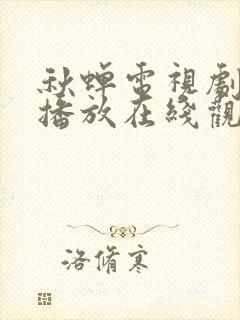 秋蟬電視劇
播放在綫觀
洛脩寒